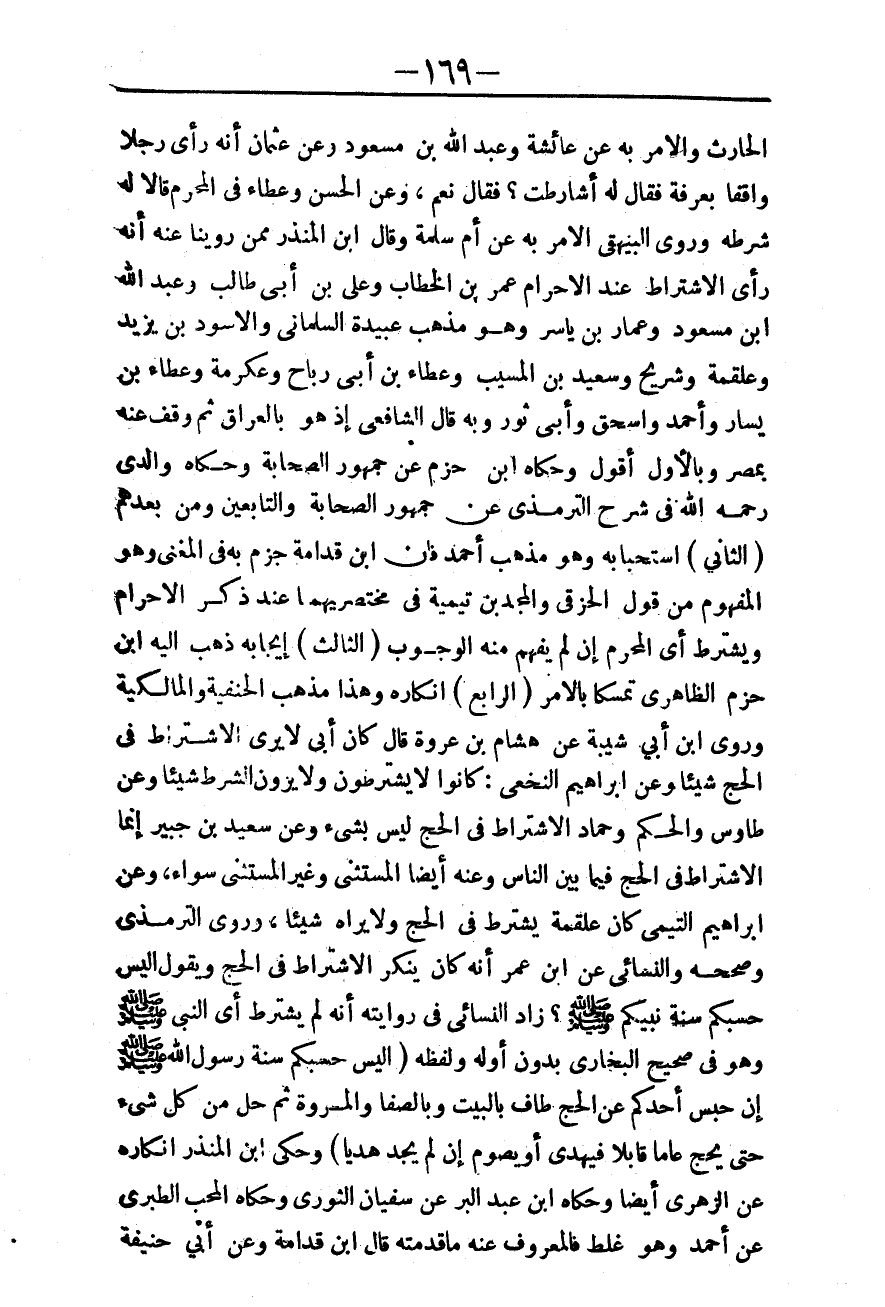 —١٦٩—
الحارث والامر به عن عائشة وعبد الله بن مسعود وعن عثمان أنه رأى رجلا
واقفا بعرفة فقال له أشارطت ؟ فقال نعم ، وعن الحسن وعطاء فى المحرم قالا له
شرطه وروى البيهقى الامر به عن أم سلمة وقال ابن المنذر ممن روينا عنه أنه
رأى الاشتراط عند الاحرام عمر بن الخطاب وعلى بن أبى طالب وعبد الله
ابن مسعود وعمار بن ياسر وهو مذهب عبيدة السلمانى والاسود بن يزيد
وعلقمة وشريح وسعيد بن المسيب وعطاء بن أبى رباح وعكرمة وعطاء بن
يسار وأحمد واسحق وأبى ثور وبه قال الشافعى إذ هو بالعراق ثم وقف عنه
بمصر وبالأول أقول وحكاه ابن حزم عن جمهور الصحابة وحكاه والدى
رحمه الله فى شرح الترمذى عن جمهور الصحابة والتابعين ومن بعدهم
( الثاني ) استحبابه وهو مذهب أحمد فان ابن قدامة جزم به فى المغنى وهو
المفهوم من قول الخرقى والمجد بن تيمية فى مختصريهما عند ذكر الاحرام
ويشترط أى المحرم إن لم يفهم منه الوجوب ( الثالث ) إيجابه ذهب اليه ابن
حزم الظاهرى تمسكا بالامر ( الرابع ) انكاره وهذا مذهب الحنفية والمالكية
وروى ابن أبي شيبة عن هشام بن عروة قال كان أبى لا يرى الاشتراط فى
الحج شيئا وعن ابراهيم النخعى : كانوا لا يشترطون ولا يرون الشرط شيئا وعن
طاوس والحكم وحماد الاشتراط فى الحج ليس بشىء وعن سعيد بن جبير إنما
الاشتراط فى الحج فيما بين الناس وعنه أيضا المستثنى وغير المستثنى سواء، وعن
ابراهيم التيمى كان علقمة يشترط فى الحج ولا يراه شيئا ، وروى الترمذى
وصححه والنسائى عن ابن عمر أنه كان ينكر الاشتراط فى الحج ويقول اليس
حسبكم سنة نبيكم ﷺ ؟ زاد النسائى فى روايته أنه لم يشترط أى النبي ﷺ
وهو فى صحيح البخارى بدون أوله ولفظه ( اليس حسبكم سنة رسول الله ﷺ
إن حبس أحدكم عن الحج طاف بالبيت وبالصفا والمروة ثم حل من كل شىء
حتى يحج عاما قابلا فيهدى أو يصوم إن لم يجد هديا ) وحكى ابن المنذر انكاره
عن الزهرى أيضا وحكاه ابن عبد البر عن سفيان الثورى وحكاه المحب الطبرى
عن أحمد وهو غلط فالمعروف عنه ما قدمته قال ابن قدامة وعن أبي حنيفة